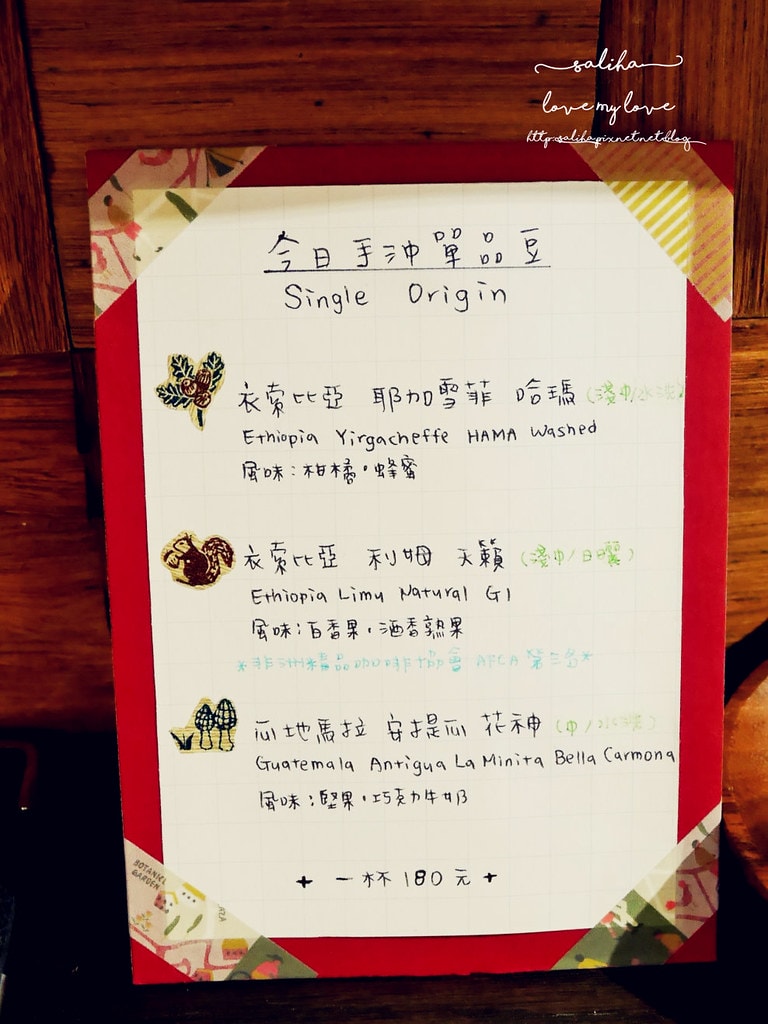 saliha
love my love
http:saliha.pixnet.net.blog
今日手沖單品豆
Single Origin
衣索比亞 耶加雪菲 哈瑪 (淺中/水洗)
Ethiopia Yirgacheffe HAMA Washed
風味：柑橘。蜂蜜
衣索比亞 利姆 天籟 (淺中/日曬)
Ethiopia Limu Natural G1
風味：百香果，酒香熟果
*非洲精品咖啡協會 AFCA 第三名*
瓜地馬拉 安提瓜 花神 (中/水洗)
Guatemala Antigua La Minita Bella Carmona
風味：堅果，巧克力牛奶
+ 一杯 180 元 +
BOTANIC
GARDEN